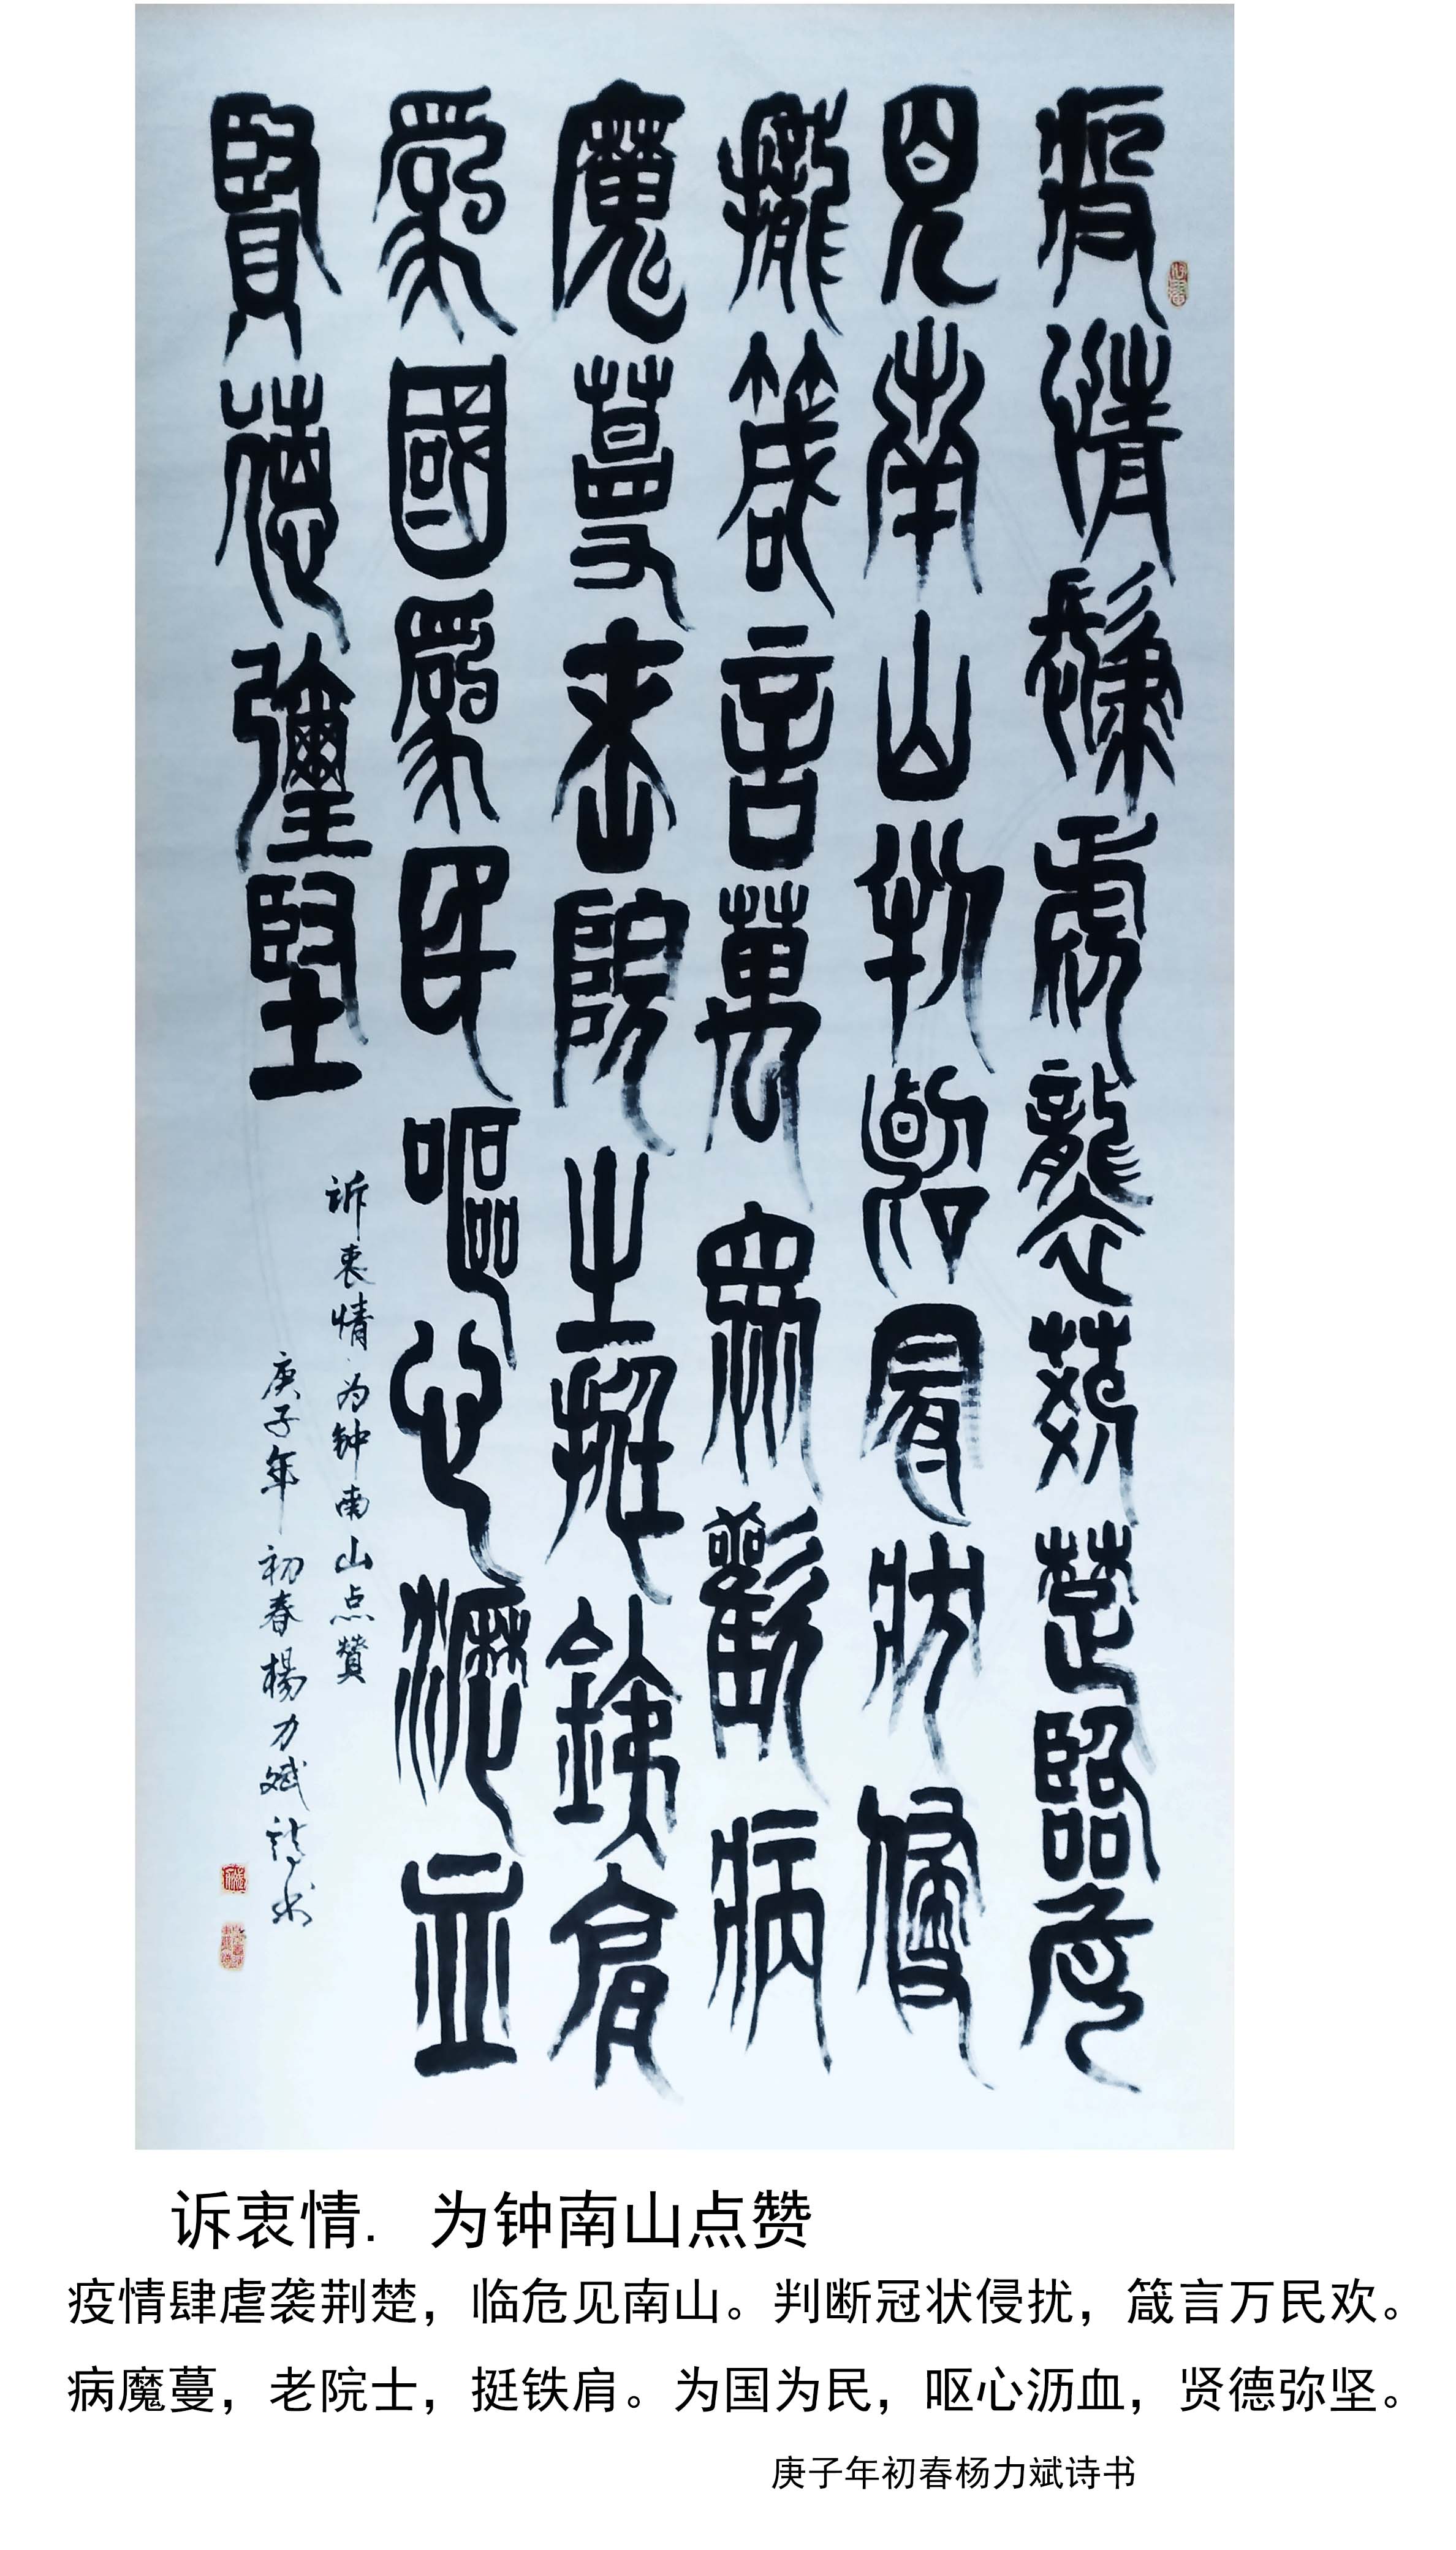 疫情肆虐襲荊楚臨危
見南山判斷冠狀侵
擾箴言萬眾歡病
魔蔓老院士挺鐵肩
爲國爲民嘔心瀝血
賢德彌堅
诉衷情为钟南山点贊
庚子年初春楊力斌詩书
诉衷情. 为钟南山点赞
疫情肆虐袭荆楚，临危见南山。判断冠状侵扰，箴言万民欢。
病魔蔓，老院士，挺铁肩。为国为民，呕心沥血，贤德弥坚。
庚子年初春杨力斌诗书